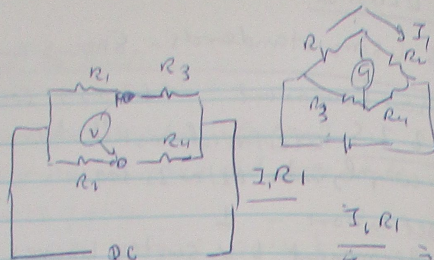 R1 R3
V
R2 R4
DC
R I1
R2
G
R3 R4
I1R1
I1R1